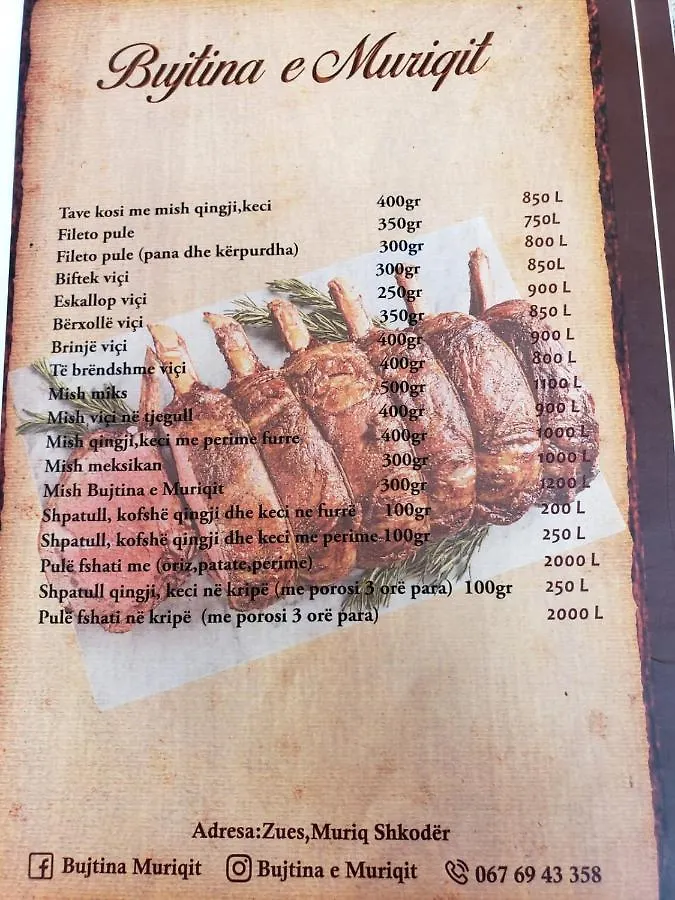 Bujtina e Muriqit
Tave kosi me mish qingji,keci 400gr 850 L
Fileto pule 350gr 750L
Fileto pule (pana dhe kërpurdha) 300gr 800 L
Biftek viçi 300gr 850L
Eskallop viçi 250gr 900 L
Bërxollë viçi 350gr 850 L
Brinjë viçi 400gr 900 L
Të brëndshme viçi 400gr 800 L
Mish miks 500gr 1100 L
Mish viçi në tjegull 400gr 900 L
Mish qingji,keci me perime furre 400gr 1000 L
Mish meksikan 300gr 1000 L
Mish Bujtina e Muriqit 300gr 1200 L
Shpatull, kofshë qingji dhe keci ne furrë 100gr 200 L
Shpatull, kofshë qingji dhe keci me perime 100gr 250 L
Pulë fshati me (oriz,patate,perime) 2000 L
Shpatull qingji, keci në kripë (me porosi 3 orë para) 100gr 250 L
Pulë fshati në kripë (me porosi 3 orë para) 2000 L
Adresa:Zues,Muriq Shkodër
Bujtina Muriqit Bujtina e Muriqit 067 69 43 358